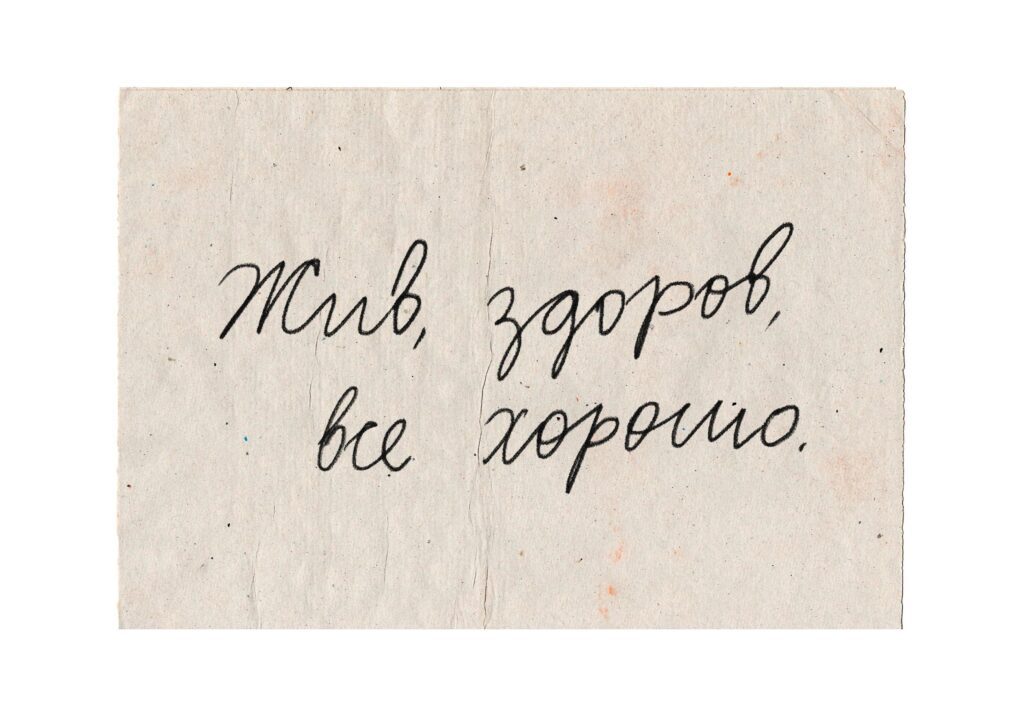 Жив, здоров,
все хорошо.